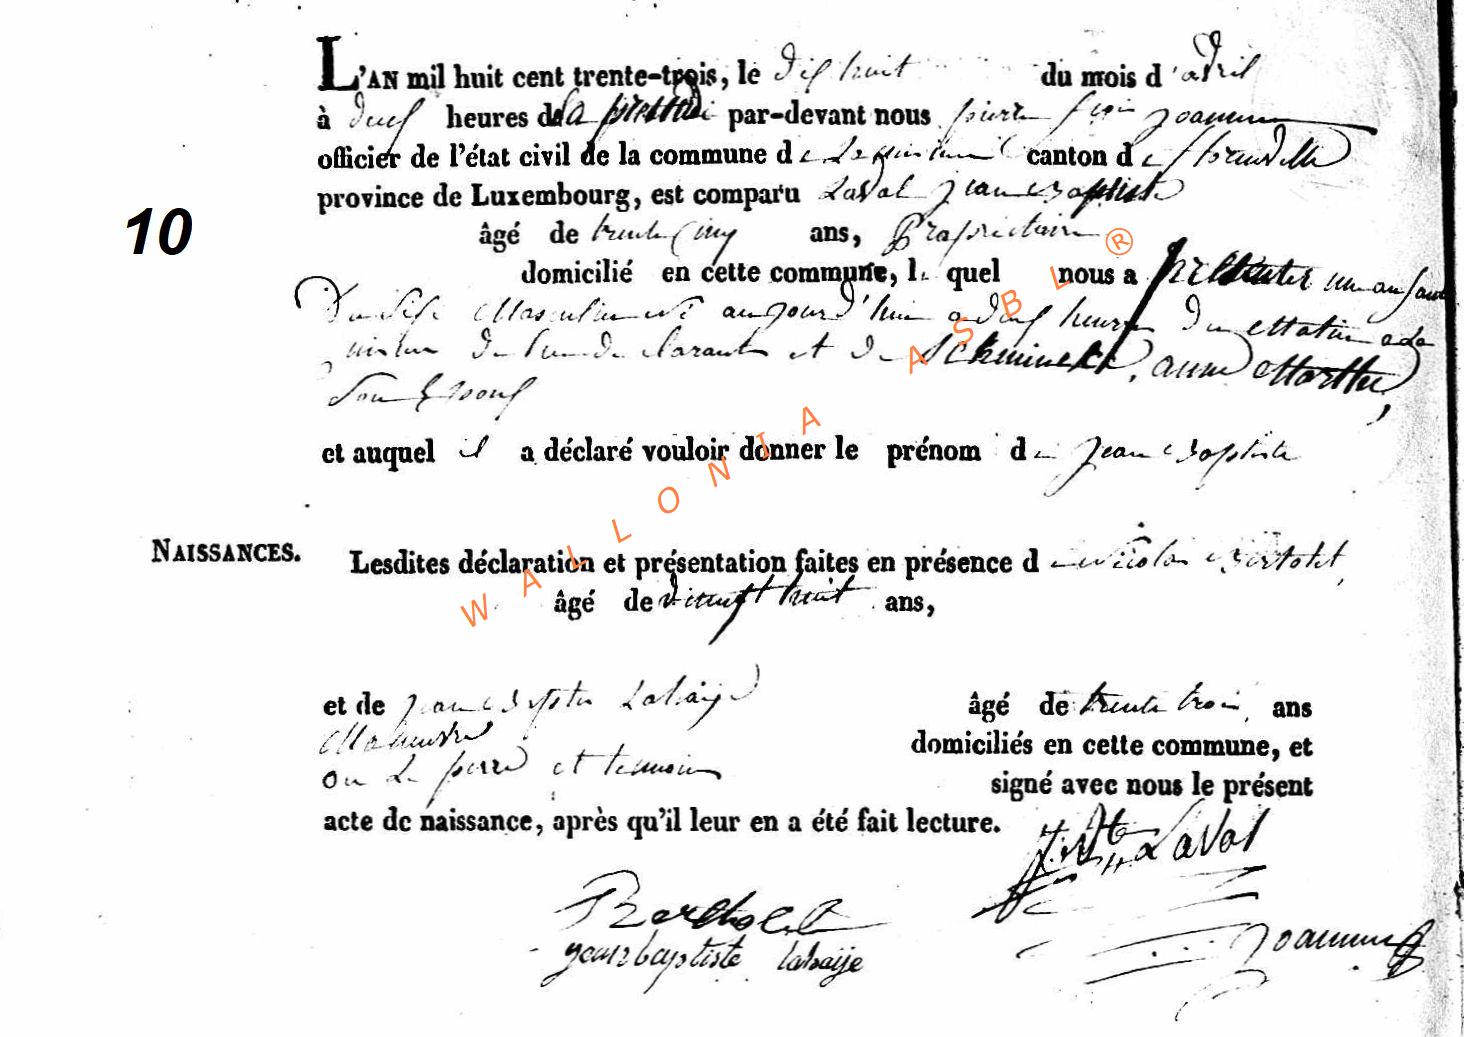 L'AN mil huit cent trente-trois, le dix huit du mois d'avril
à deux heures de la par-devant nous pierre joannes
officier de l'état civil de la commune de canton de florenville
province de Luxembourg, est comparu Laval jean Baptiste
10
âgé de trente cinq ans, Propriétaire
domicilié en cette commune, le quel nous a présenter un enfant
Du sexe Masculin né aujourd'hui a deux heures du Matin
de lui déclarant et de anne Marthe,
son Epouse
et auquel il a déclaré vouloir donner le prénom de jean Baptiste
NAISSANCES.
Lesdites déclaration et présentation faites en présence de Nicolas Bertolet,
âgé de vingt huit ans,
et de jean Baptiste Lahaije âgé de trente trois ans
domiciliés en cette commune, et
on Le perre et temoins signé avec nous le présent
acte de naissance, après qu'il leur en a été fait lecture.
J. Bte Laval
Bertholet
joannes
jean baptiste lahaije
WALLONIA ASBL ®